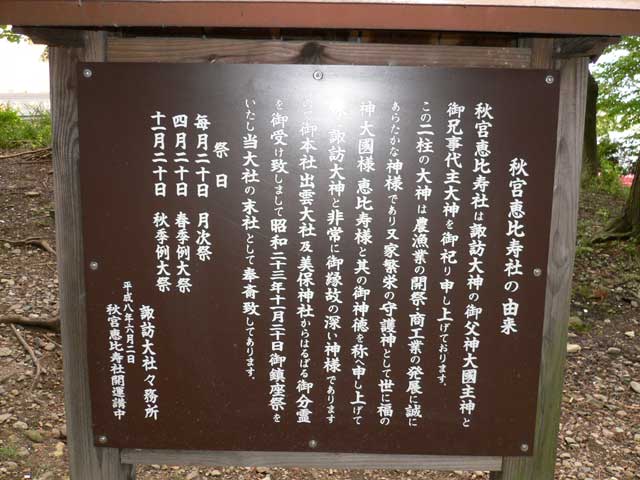 秋宮恵比寿社の由来
秋宮恵比寿社は諏訪大神の御父神大國主神と
御兄事代主大神を御祀り申し上げております。
この二柱の大神は農漁業の開祭、商工業の発展に誠に
あらたかな神様であり又家繁栄の守護神として世に福の
神大國様 恵比寿様と其の御神徳を称へ申し上げて
諏訪大神と非常に御縁故の深い神様であります
御本社出雲大社及美保神社からはるばる御分霊
を御受け致しまして昭和二十三年十一月二十日御鎮座祭を
いたし当大社の末社として奉斎致してあります。
祭日
毎月二十日 月次祭
四月二十日 春季例大祭
十一月二十日 秋季例大祭
諏訪大社々務所
平成八年六月二日
秋宮恵比寿社開運講中